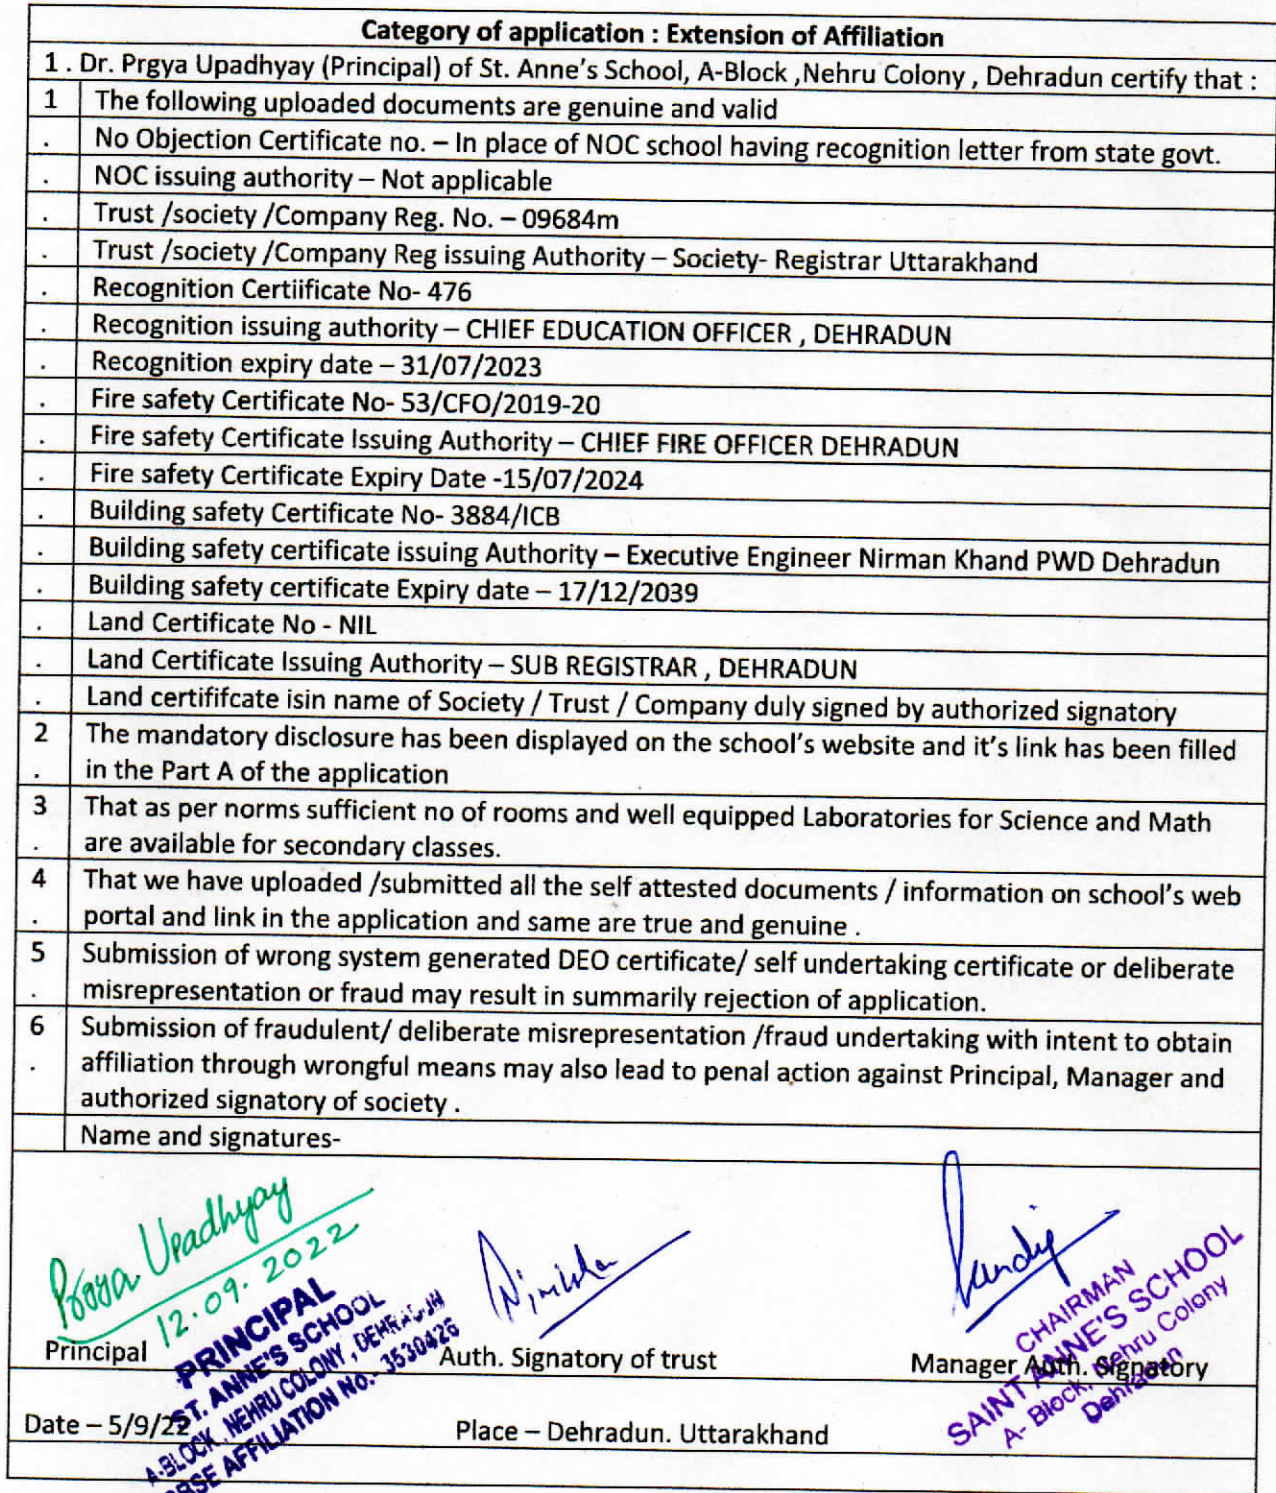 Category of application : Extension of Affiliation
1 . Dr. Prgya Upadhyay (Principal) of St. Anne's School, A-Block ,Nehru Colony , Dehradun certify that :
1 The following uploaded documents are genuine and valid
. No Objection Certificate no. – In place of NOC school having recognition letter from state govt.
. NOC issuing authority – Not applicable
. Trust /society /Company Reg. No. – 09684m
. Trust /society /Company Reg issuing Authority – Society- Registrar Uttarakhand
. Recognition Certiificate No- 476
. Recognition issuing authority – CHIEF EDUCATION OFFICER , DEHRADUN
. Recognition expiry date – 31/07/2023
. Fire safety Certificate No- 53/CFO/2019-20
. Fire safety Certificate Issuing Authority – CHIEF FIRE OFFICER DEHRADUN
. Fire safety Certificate Expiry Date -15/07/2024
. Building safety Certificate No- 3884/ICB
. Building safety certificate issuing Authority – Executive Engineer Nirman Khand PWD Dehradun
. Building safety certificate Expiry date – 17/12/2039
. Land Certificate No - NIL
. Land Certificate Issuing Authority – SUB REGISTRAR , DEHRADUN
. Land certififcate isin name of Society / Trust / Company duly signed by authorized signatory
2 The mandatory disclosure has been displayed on the school's website and it's link has been filled
. in the Part A of the application
3 That as per norms sufficient no of rooms and well equipped Laboratories for Science and Math
. are available for secondary classes.
4 That we have uploaded /submitted all the self attested documents / information on school's web
. portal and link in the application and same are true and genuine .
5 Submission of wrong system generated DEO certificate/ self undertaking certificate or deliberate
. misrepresentation or fraud may result in summarily rejection of application.
6 Submission of fraudulent/ deliberate misrepresentation /fraud undertaking with intent to obtain
. affiliation through wrongful means may also lead to penal action against Principal, Manager and
authorized signatory of society .
Name and signatures-
Upadhyay
12.09.2022
PRINCIPAL
ST. ANNE'S SCHOOL
A-BLOCK, NEHRU COLONY, DEHRADUN
CBSE AFFILIATION No.- 3530426
CHAIRMAN
SAINT ANNE'S SCHOOL
A- Block, Nehru Colony
Dehradun
Principal
Auth. Signatory of trust
Manager Auth. Signatory
Date – 5/9/22
Place – Dehradun. Uttarakhand